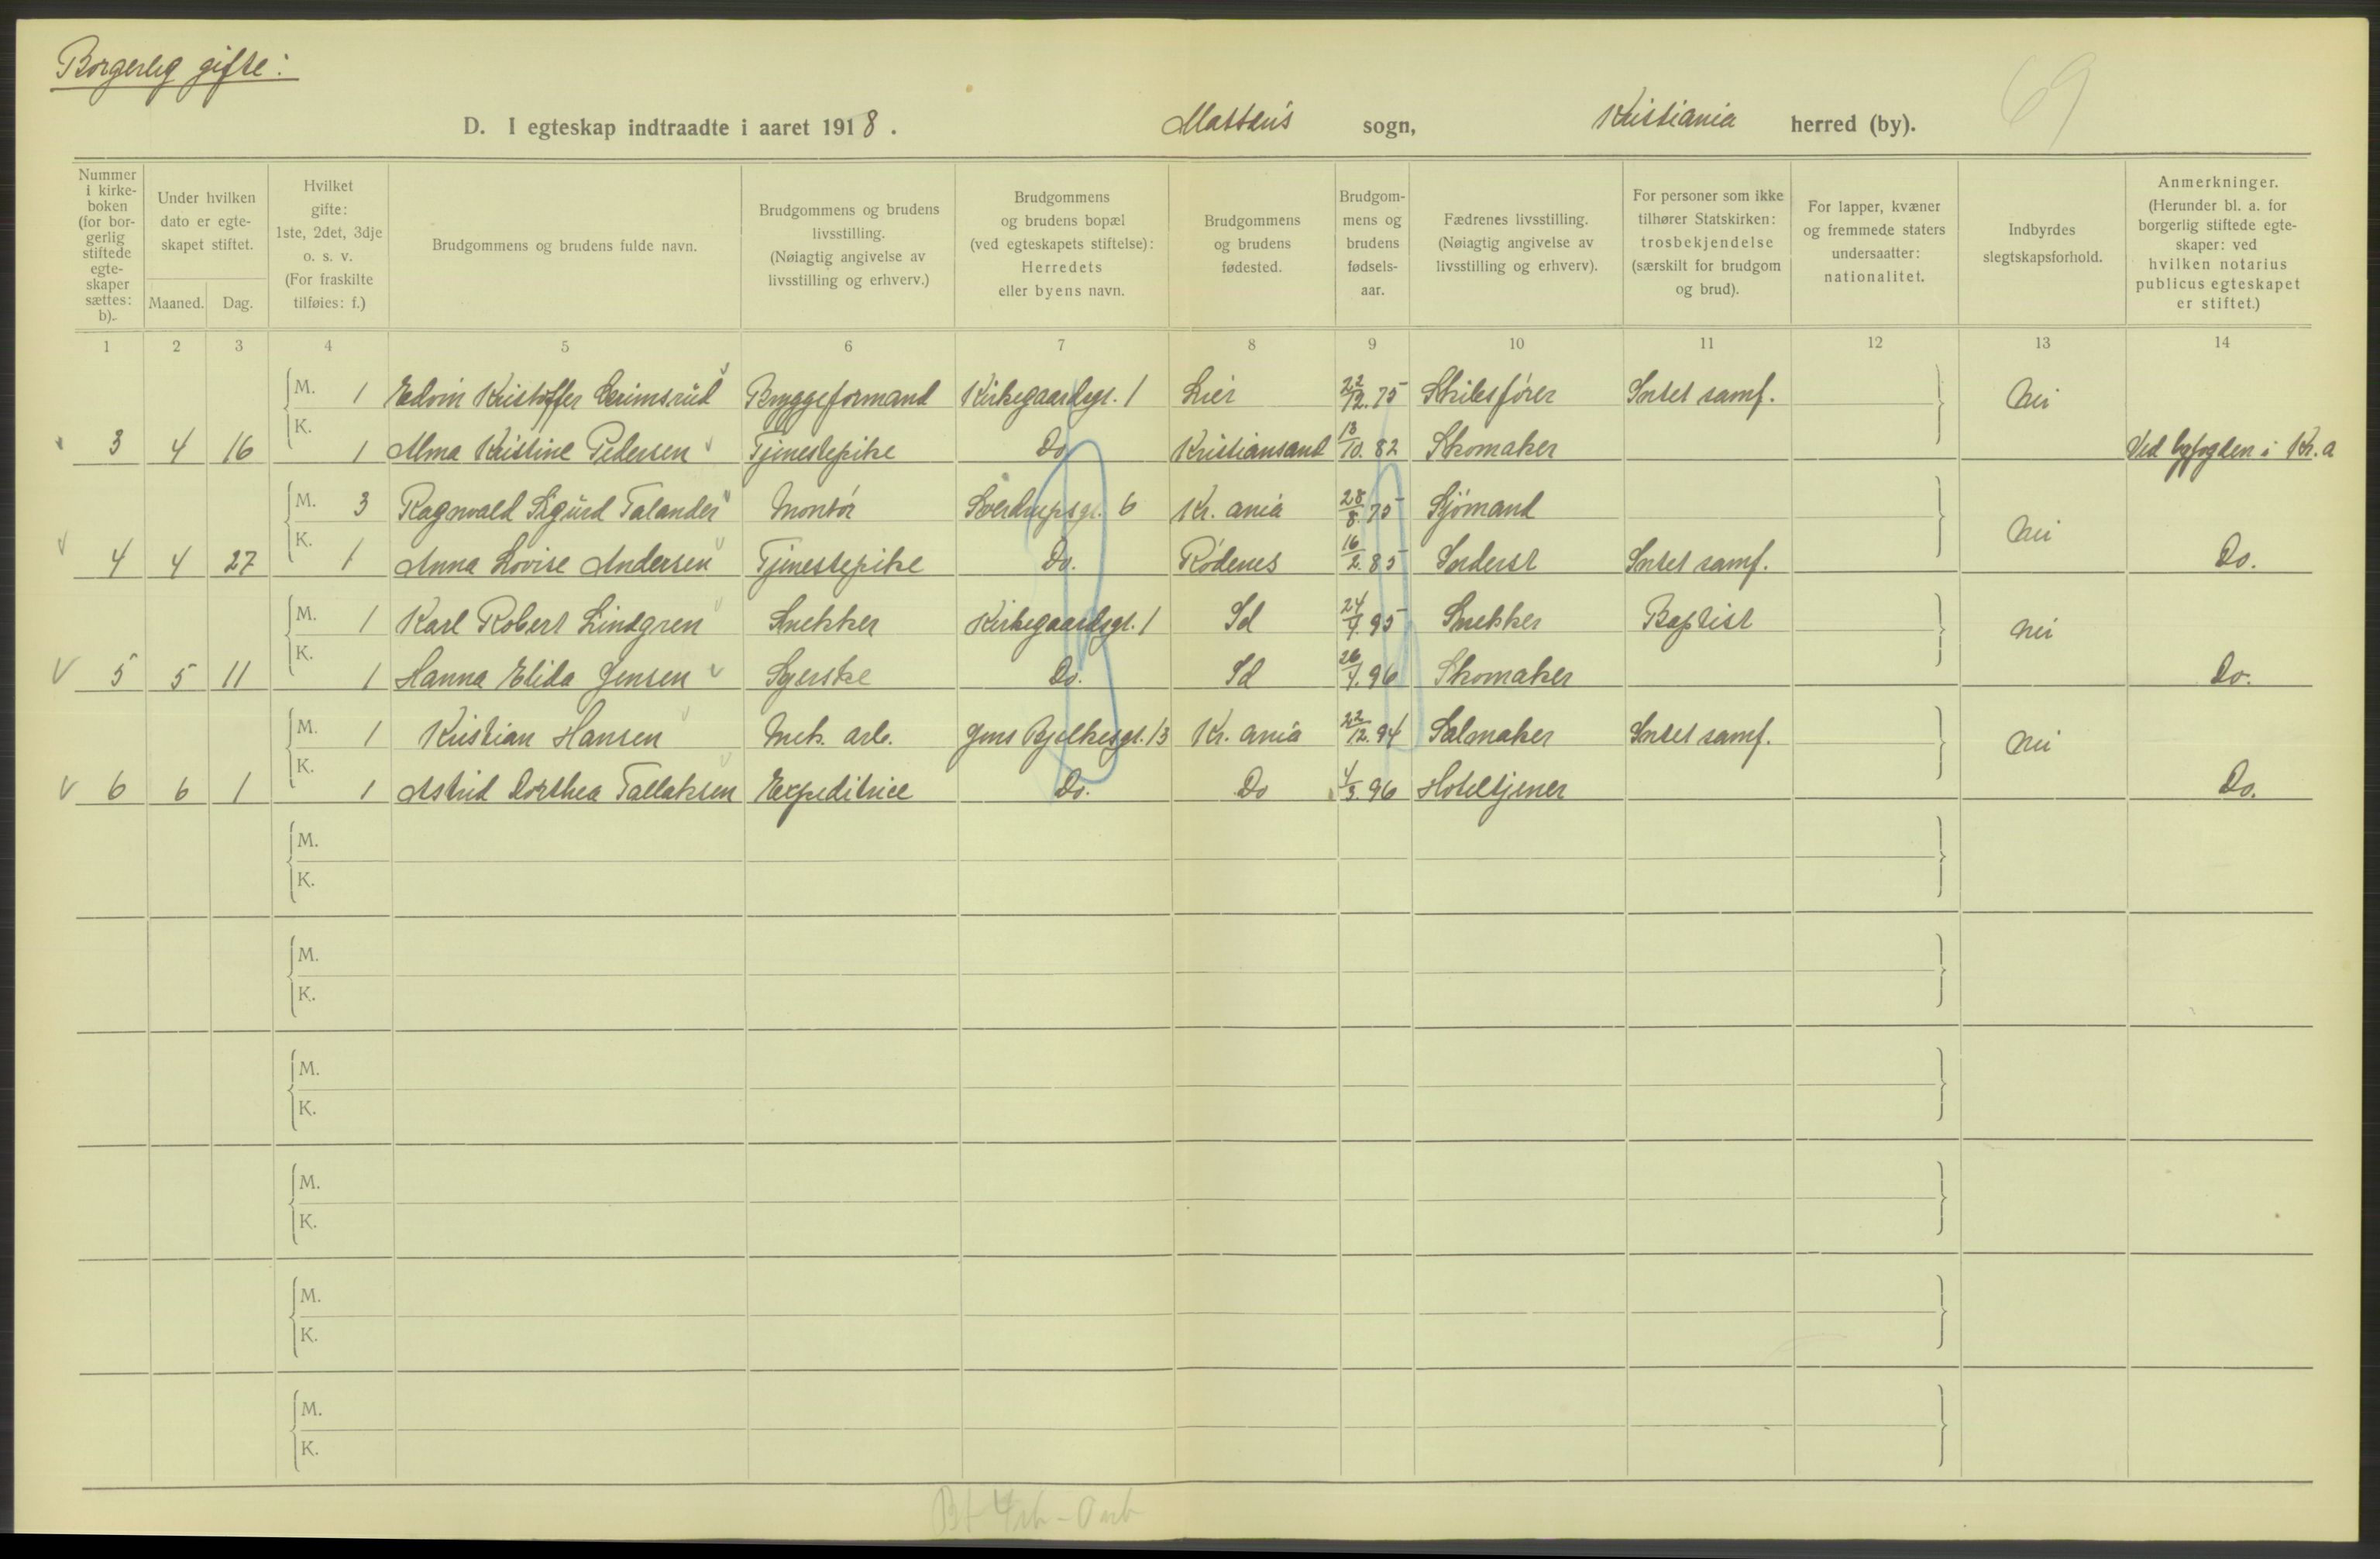 Borgerlig gifte:
69
D. I egteskap indtraadte i aaret 1918. Matteus sogn, Kristiania herred (by).
Nummer i kirkeboken (for borgerlig stiftede egteskaper sættes: b).
Under hvilken dato er egteskapet stiftet.
Maaned. Dag.
Hvilket gifte: 1ste, 2det, 3dje o. s. v. (For fraskilte tilføies: f.)
Brudgommens og brudens fulde navn.
Brudgommens og brudens livsstilling. (Nøiagtig angivelse av livsstilling og erhverv.)
Brudgommens og brudens bopæl (ved egteskapets stiftelse): Herredets eller byens navn.
Brudgommens og brudens fødested.
Brudgommens og brudens fødselsaar.
Fædrenes livsstilling. (Nøiagtig angivelse av livsstilling og erhverv).
For personer som ikke tilhører Statskirken: trosbekjendelse (særskilt for brudgom og brud).
For lapper, kvæner og fremmede staters undersaatter: nationalitet.
Indbyrdes slegtskapsforhold.
Anmerkninger. (Herunder bl. a. for borgerlig stiftede egteskaper: ved hvilken notarius publicus egteskapet er stiftet.)
1 2 3 4 5 6 7 8 9 10 11 12 13 14
M. 1 Edvin Kristoffer Bryggeformand Kirkegaardsgt. 1 Lier 22/12.75 Skibsfører Intet samf. Nei
3 4 16 K. 1 Alma Kristine Pedersen Tjenestepike Do Kristiansand 13/10.82 Skomaker Ved byfogden i Kr.a
M. 3 Ragnvald Sigurd Talander Montör Sverdrupsgt. 6 Kr.ania 28/8.75 Sjömand Nei
4 4 27 K. 1 Anna Lovise Andersen Tjenestepike Do. Rödenes 16/2.85 Inderst Intet samf. Do.
M. 1 Karl Robert Lindgren Snekker Kirkegaardsgt. 1 Id 24/7.95 Snekker Baptist Nei
5 5 11 K. 1 Hanna Elida Jensen Syerske Do. Id 26/7.96 Skomaker Do.
M. 1 Kristian Hansen Mek. arb. Jens Bjelkesgt. 13 Kr.ania 22/12.94 Salmaker Intet samf. Nei
6 6 1 K. 1 Astrid Dorthea Tallaksen Expeditrice Do. Do 4/3.96 Hoteltjener Do.
M.
K.
M.
K.
M.
K.
M.
K.
M.
K.
M.
K.